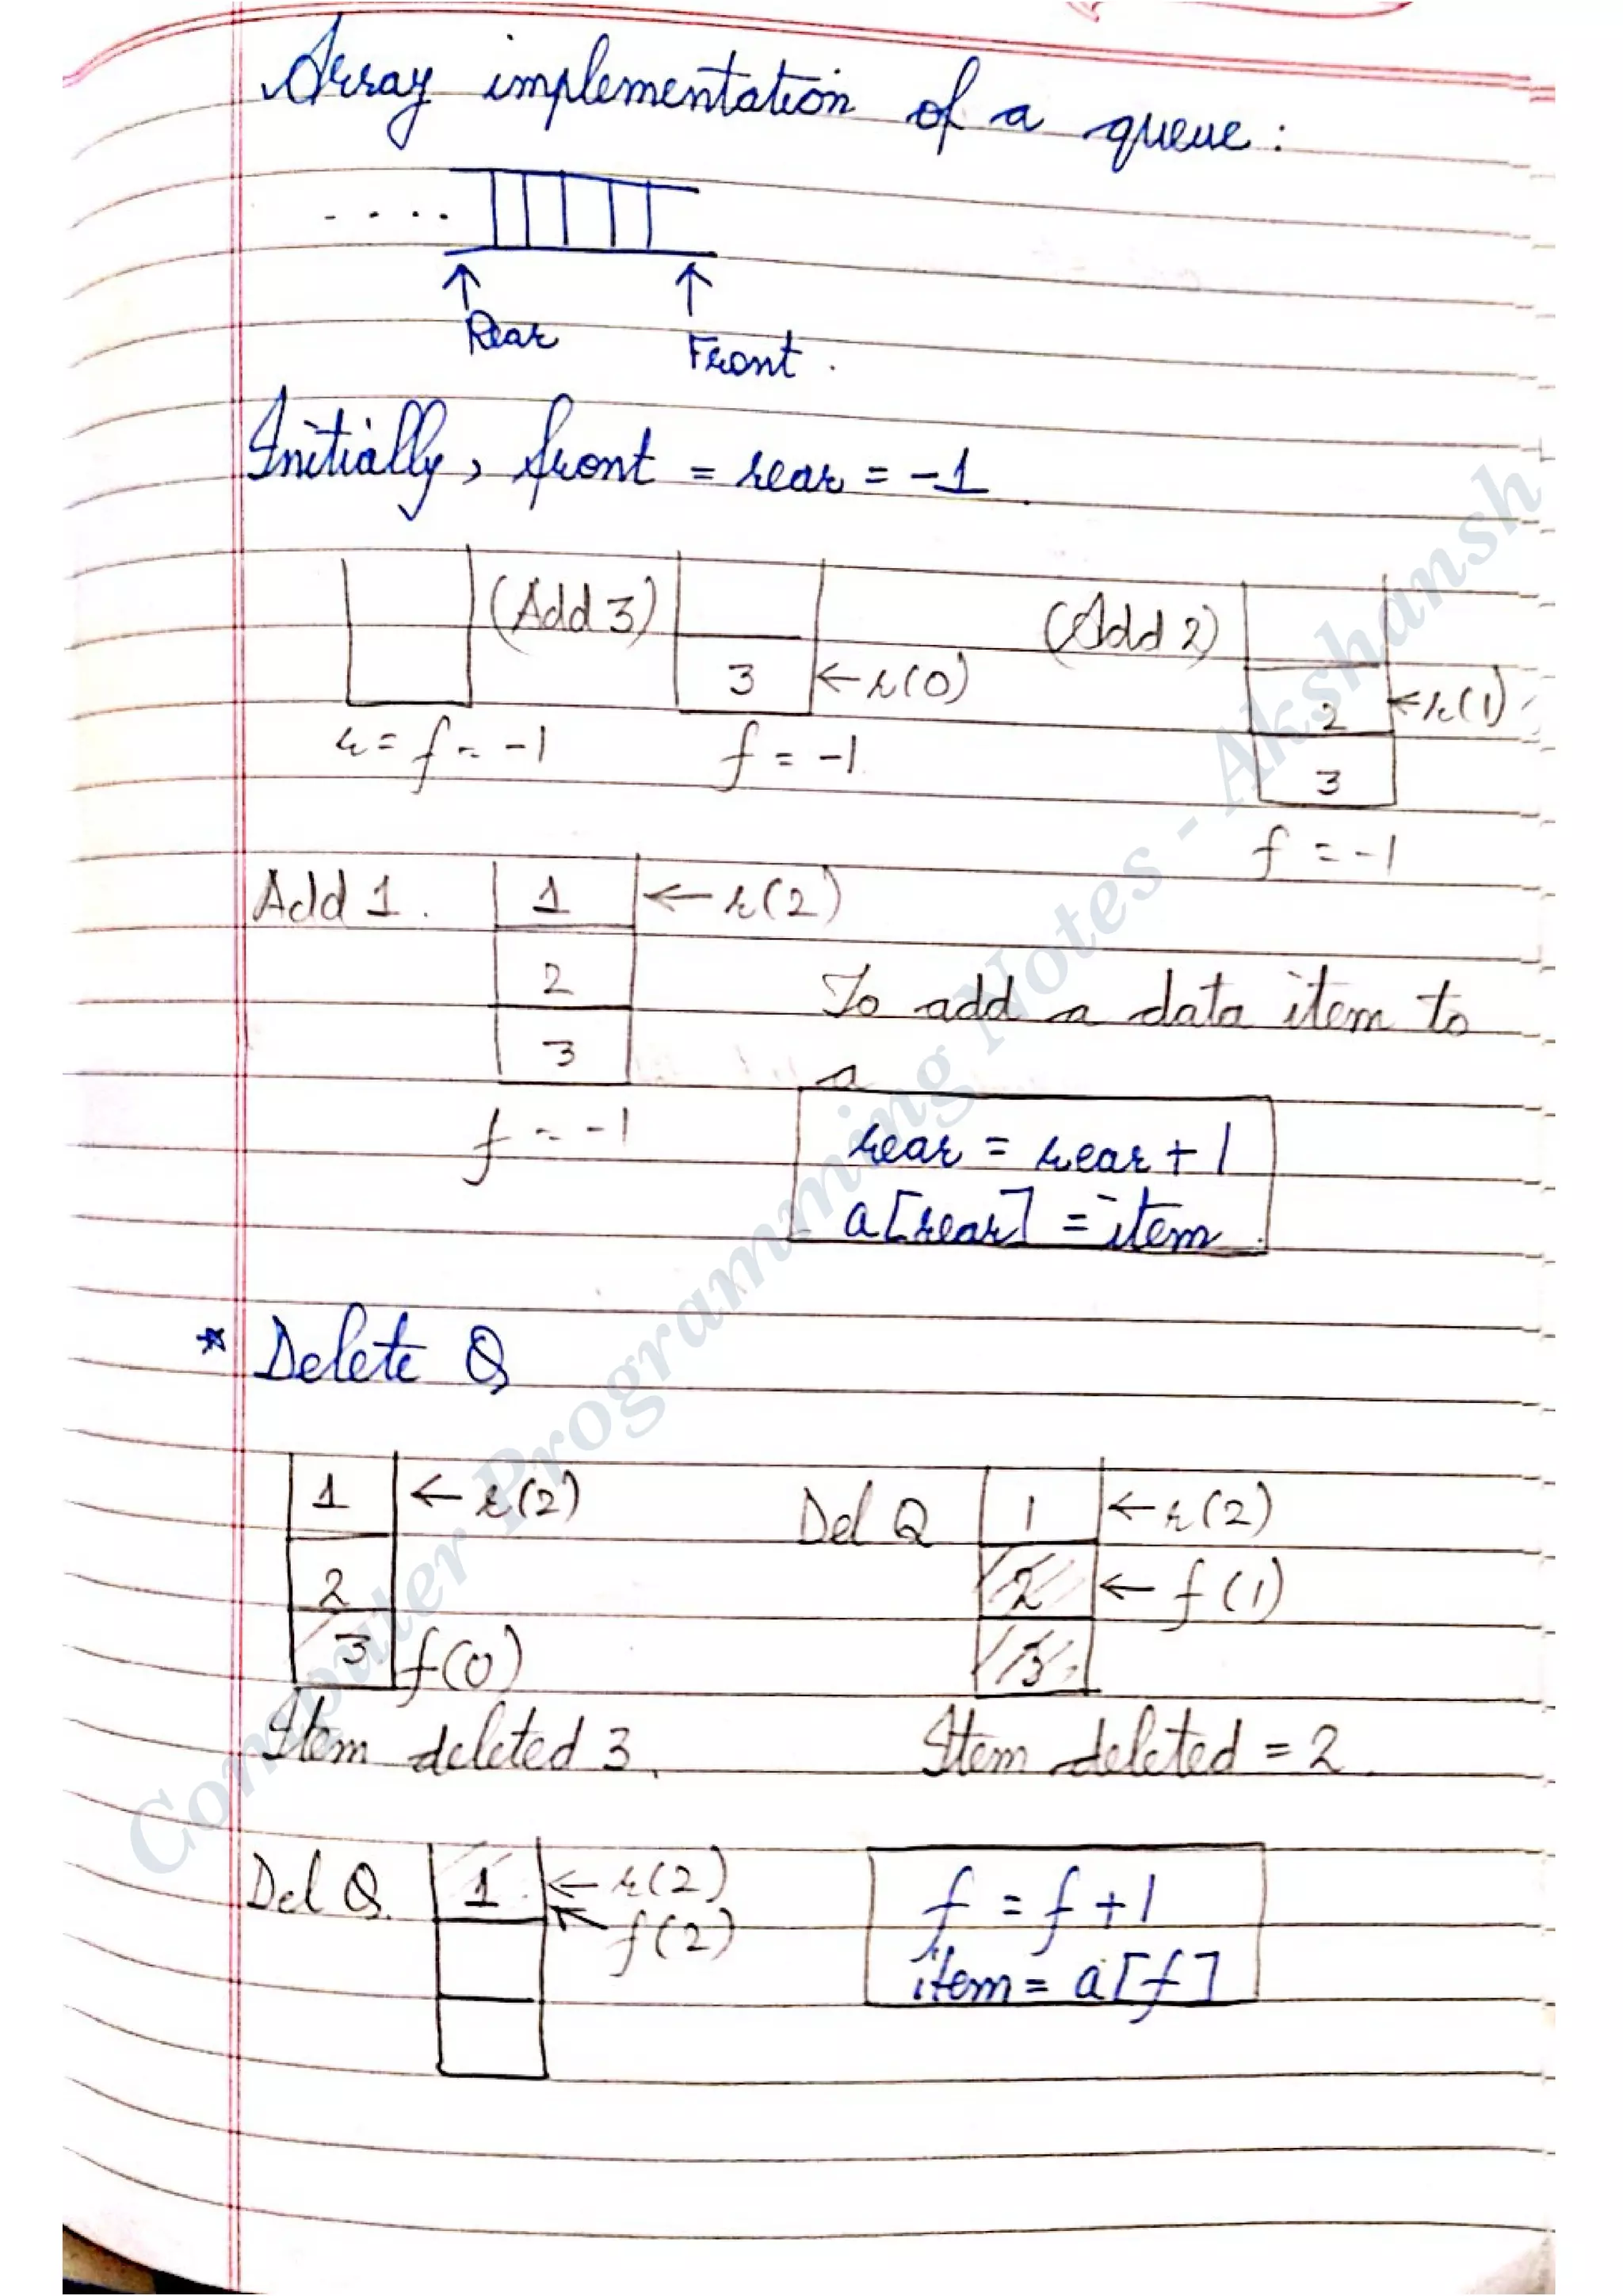 Array implementation of a queue:
....
↑ ↑
Rear Front.
Initially, front = rear = -1
(Add 3) 3 ←r(0) (Add 2) 2 ←r(1)
3
r = f = -1 f = -1
f = -1
Add 1. 1 ← r(2)
2
To add a data item to
3
a
f = -1
rear = rear + 1
a[rear] = item.
* Delete Q
1 ← r(2) Del Q 1 ← r(2)
2 2 ← f(1)
3 f(0) 3
Item deleted 3. Item deleted = 2.
Del Q. 1 ← r(2)
f(2)
f = f + 1
item = a[f]
Computer Programming Notes - Akshansh